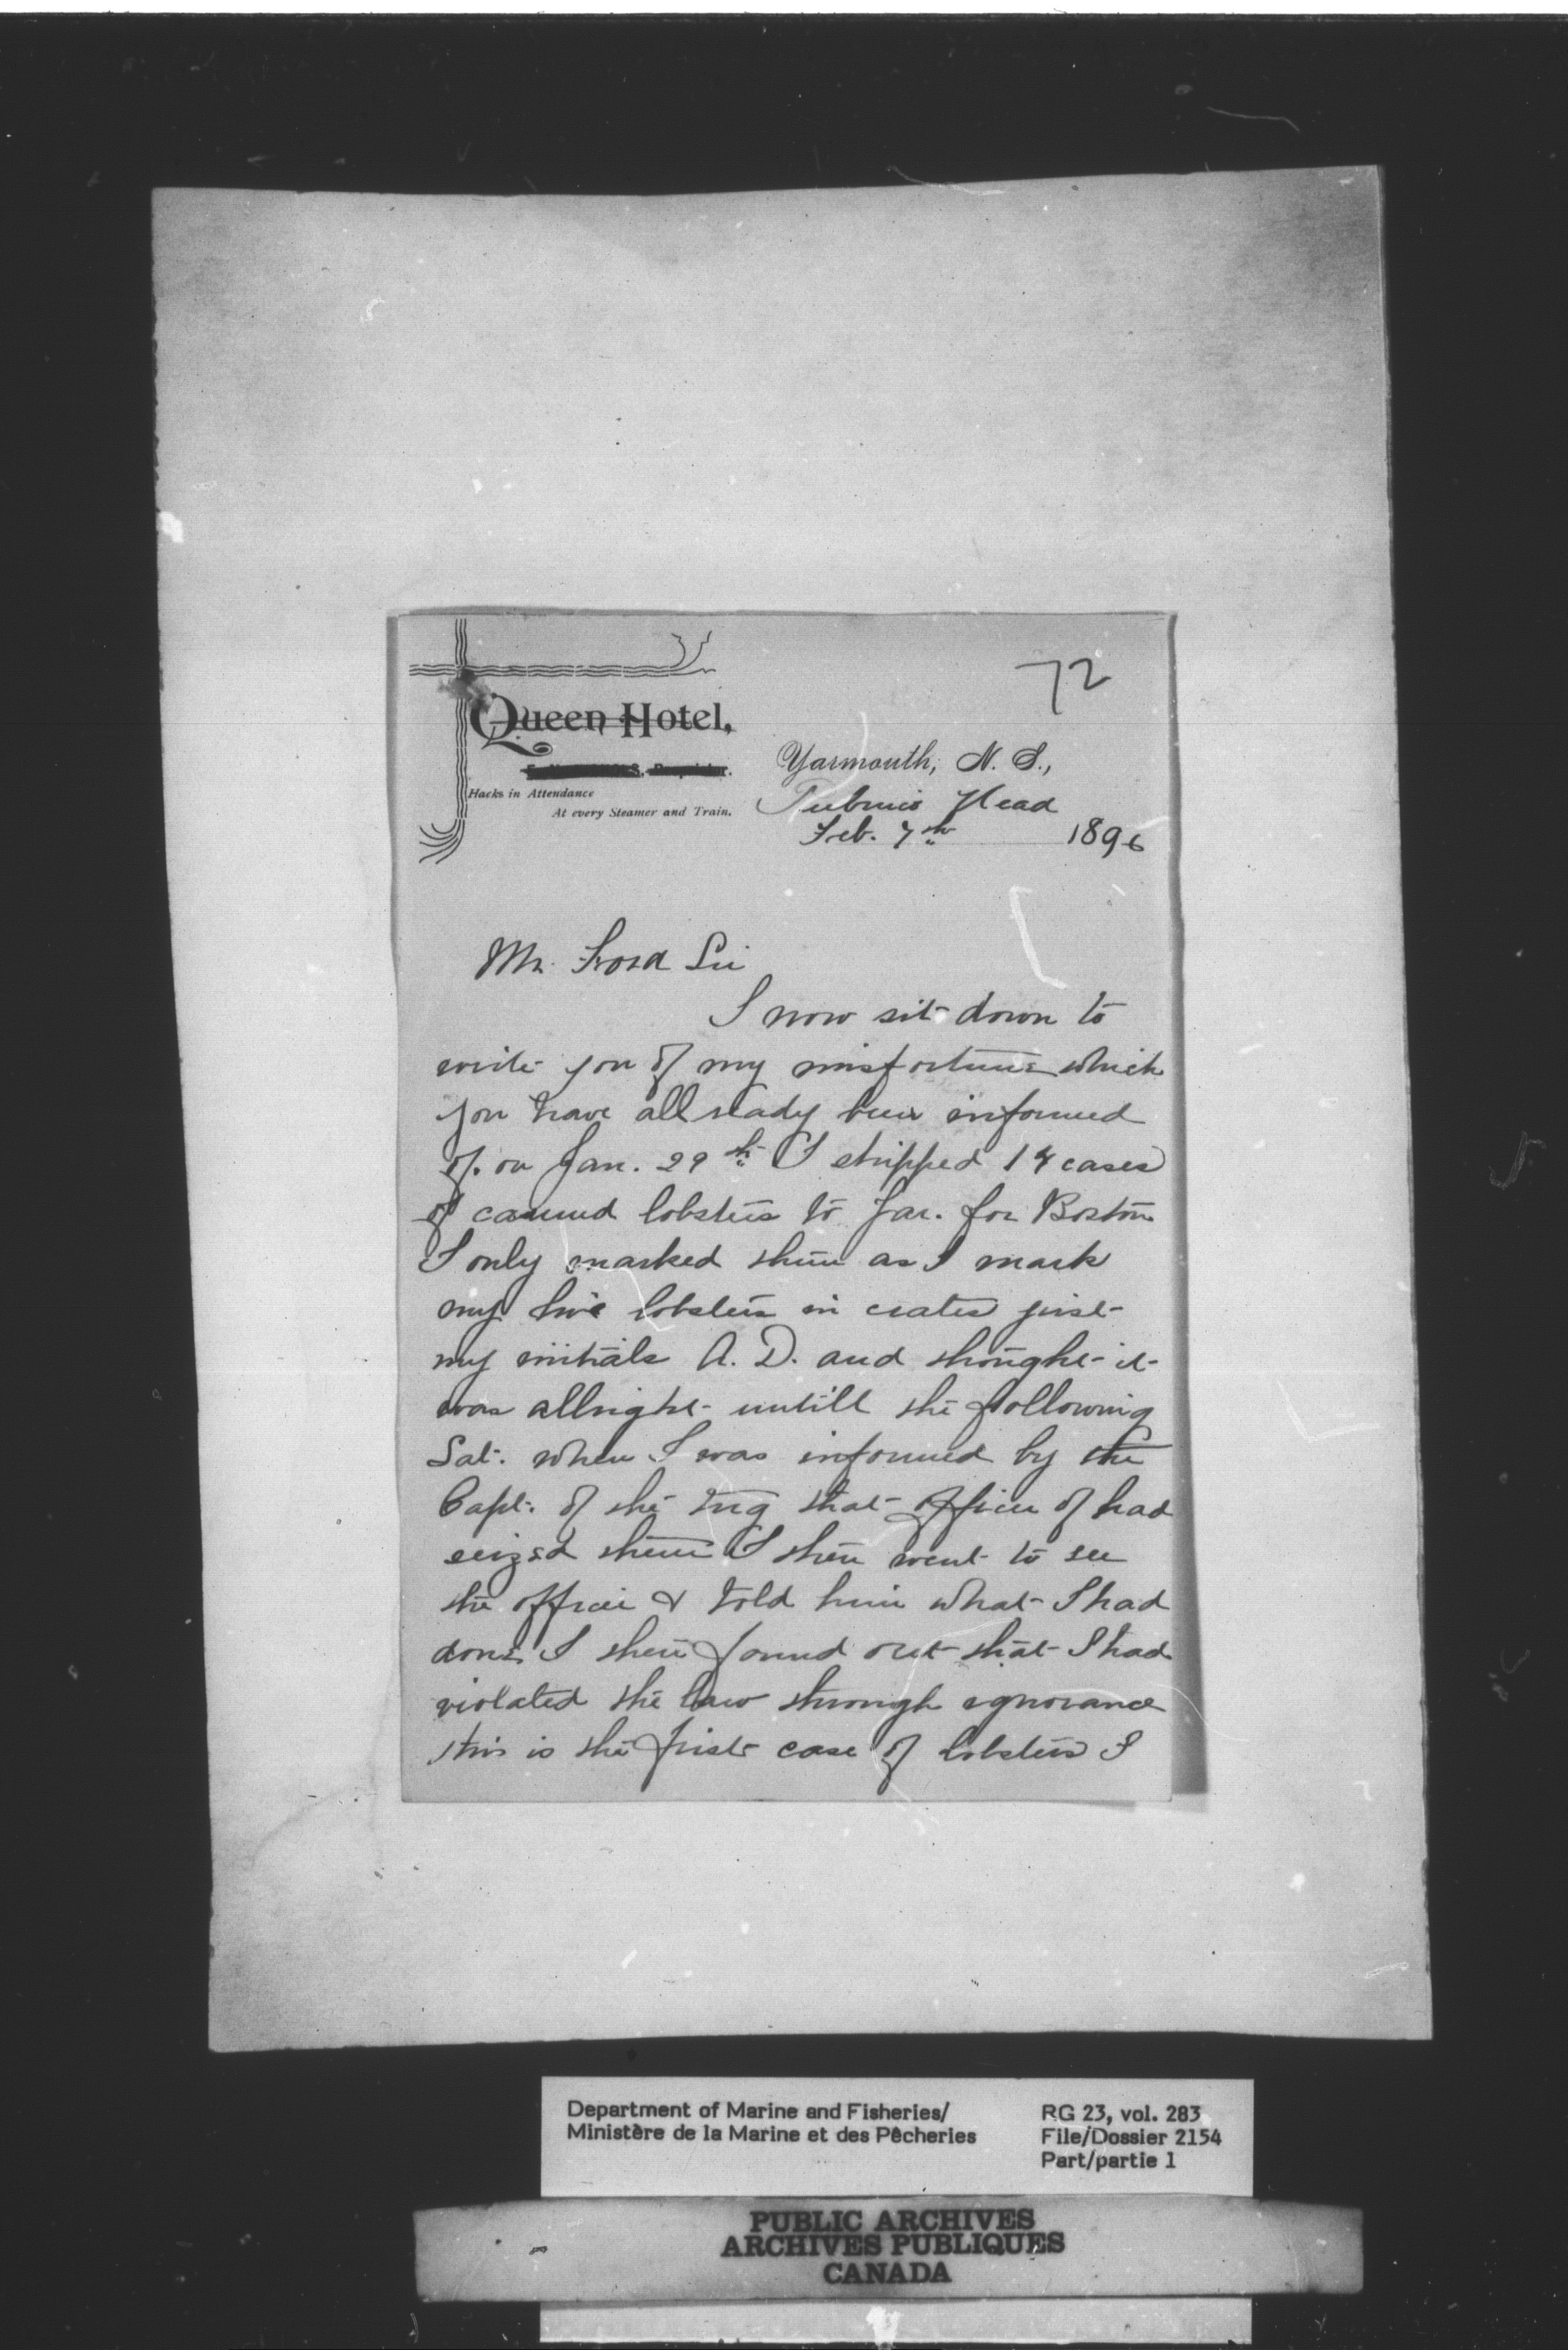 72
Queen Hotel,
Hacks in Attendance
At every Steamer and Train.
Yarmouth, N. S.,
Head
Feb. 7th 1896
Mr. Ford Sir
I now sit down to
write you of my misfortune which
you have allready been informed
of. on Jan. 29th I shipped 14 cases
of canned lobsters to Yar. for Boston
I only marked them as I mark
my live lobsters in crates just
my initials A. D. and thought it
was allright untill the following
Sat. when I was informed by the
Capt. of the tug that officer of had
seized them I then went to see
the officer & told him what I had
done I then found out that I had
violated the law through ignorance
this is the first case of lobsters I
Department of Marine and Fisheries/
Ministère de la Marine et des Pêcheries
RG 23, vol. 283
File/Dossier 2154
Part/partie 1
PUBLIC ARCHIVES
ARCHIVES PUBLIQUES
CANADA